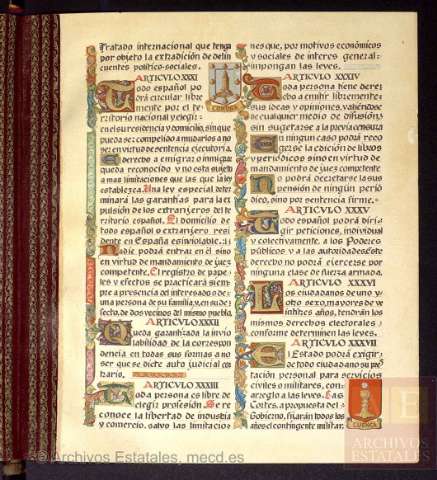 Tratado internacional que tenga
por objeto la extradición de delin
cuentes político-sociales.
ARTICULO XXXI
Todo español po
drá circular libre
mente por el te
rritorio nacional y elegir
en el su residencia y domicilio, sin que
pueda ser compelido a mudarlos a no
ser en virtud de sentencia ejecutoria.
El derecho a emigrar o inmigrar
queda reconocido y no está sujeto
a mas limitaciones que las que la ley
establezca. Una ley especial deter
minará las garantías para la ex
pulsión de los extranjeros del te
rritorio español. El domicilio de
todo español o extranjero resi
dente en España es inviolable.
Nadie podrá entrar en él sino
en virtud de mandamiento de juez
competente. El registro de pape
les y efectos se practicará siem
pre a presencia del interesado o de
una persona de su familia, y, en su de
fecto de dos vecinos del mismo pueblo.
ARTICULO XXXII
Queda garantizada la invio
labilidad de la correspon
dencia en todas sus formas a no
ser que se dicte auto judicial con
trario.
ARTICULO XXXIII
Toda persona es libre de
elegir profesión. Se re
conoce la libertad de industria
y comercio, salvo las limitacio
CUENCA
nes que, por motivos económicos
y sociales de interes general:
impongan las leyes.
ARTICULO XXXIV
Toda persona tiene derec
ho a emitir libremente
sus ideas y opiniones, valiéndose
de cualquier medio de difusión
sin sugetarse a la previa censura
En ningun caso podrá reco
gerse la edición de libros
y periódicos sino en virtud de
mandamiento de juez competente
No podrá decretarse la sus
pensión de ningún perió
dico, sino por sentencia firme.
ARTICULO XXXV
Todo español podrá diri
gir peticiones, individual
y colectivamente, a los Poderes
públicos y a las autoridades. Este
derecho no podrá ejercerse por
ninguna clase de fuerza armada.
ARTICULO XXXVI
Los ciudadanos de uno y
otro sexo, mayores de ve
intitrés años, tendrán los
mismos derechos electorales
conforme determinen las leyes.
ARTICULO XXXVII
El Estado podrá exigir
de todo ciudadano su pres
tación personal para servicios
civiles o militares, con
arreglo a las leyes. Las
Cortes, a propuesta del
Gobierno, fijarán todos los
años el contingente militar.
CUENCA
ARCHIVOS
ESTATALES
© Archivos Estatales, mecd.es